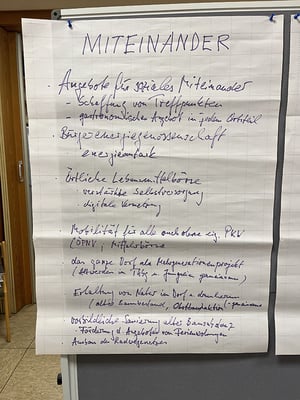 MITEINANDER
· Angebote für soziales Miteinander
- Schaffung von Treffpunkten
- gastronomisches Angebot in jedem Ortsteil
· Bürgerenergiegenossenschaft
· energieautark
· Örtliche Lebensmittelbörse
· verstärkte Selbstversorgung
· digitale Vernetzung
· Mobilität für alle auch ohne eig. PKW
(ÖPNV, Mitfahrbörse
· das ganze Dorf als Mehrgenerationenprojekt
(Altwerden in + Jung sein gemeinsam)
· Erhaltung von Natur im Dorf + drumherum
(alter Baumbestand, Obst
vorbildliche Sanierung alter Bausubstanz
· Förderung d. Angebotes von Ferienwohnungen
· Ausbau des Radwegenetzes